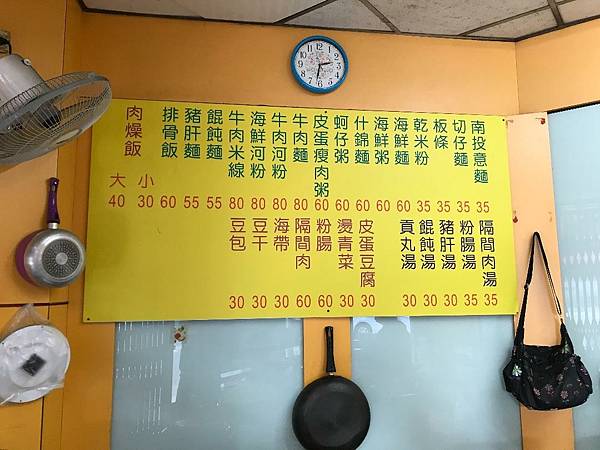 南投意麵 35
切仔麵 35
板條 35
乾米粉 35
海鮮麵 60
海鮮粥 60
什錦麵 60
蚵仔粥 60
皮蛋瘦肉粥 60
牛肉麵 80
牛肉河粉 80
海鮮河粉 80
牛肉米線 80
餛飩麵 55
豬肝麵 55
排骨飯 60
肉燥飯 小 30 大 40
隔間肉湯 35
粉腸湯 35
豬肝湯 30
餛飩湯 30
貢丸湯 30
皮蛋豆腐 30
燙青菜 30
粉腸 60
隔間肉 60
海帶 30
豆干 30
豆包 30